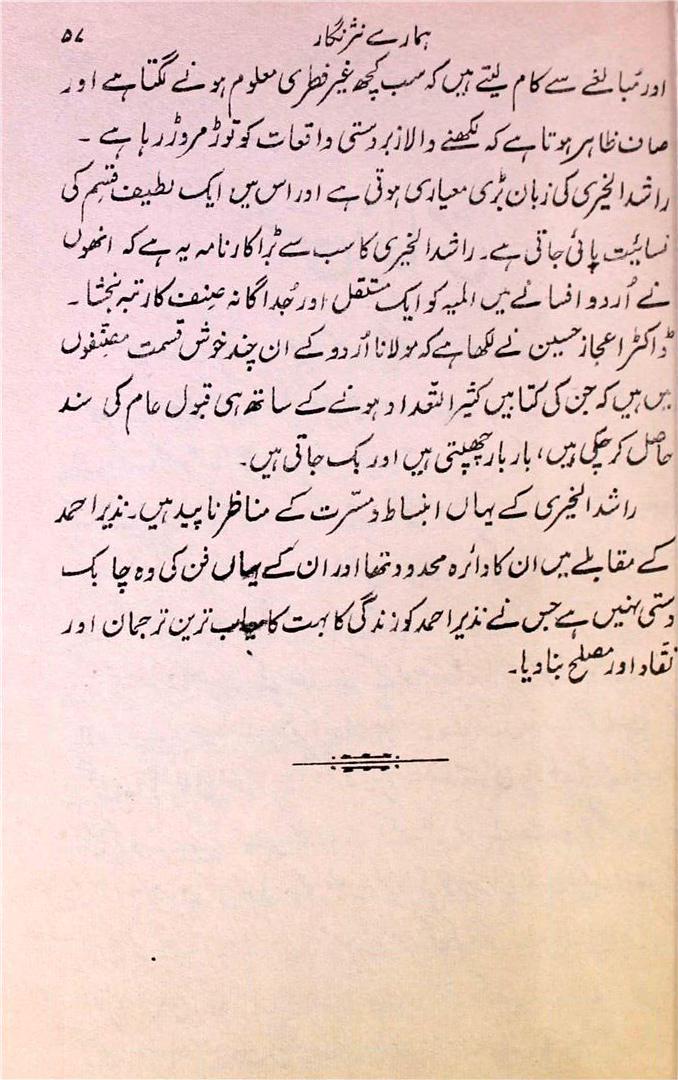 ہمارے نثر نگار
۵۷
اور مبالغے سے کام لیتے ہیں کہ سب کچھ غیر فطری معلوم ہونے لگتا ہے اور
صاف ظاہر ہوتا ہے کہ لکھنے والا زبردستی واقعات کو توڑ مروڑ رہا ہے ۔
راشد الخیری کی زبان بڑی معیاری ہوتی ہے اور اس میں ایک لطیف قسم کی
نسائیت پائی جاتی ہے۔ راشد الخیری کا سب سے بڑا کارنامہ یہ ہے کہ انھوں
نے اُردو افسانے میں المیہ کو ایک مستقل اور جُداگانہ صنف کا رتبہ بخشا ۔
ڈاکٹر اعجاز حسین نے لکھا ہے کہ مولانا اُردو کے ان چند خوش قسمت مصنّفوں
میں ہیں کہ جن کی کتابیں کثیر التعّداد ہونے کے ساتھ ہی قبول عام کی سند
حاصل کر چکی ہیں، بار بار چھپتی ہیں اور بک جاتی ہیں۔
راشد الخیری کے یہاں انبساط و مسّرت کے مناظر ناپید ہیں۔ نذیر احمد
کے مقابلے میں ان کا دائرہ محدود تھا اور ان کے یہاں فن کی وہ چابک
دستی نہیں ہے جس نے نذیر احمد کو زندگی کا بہت کامیاب ترین ترجمان اور
نقّاد اور مصلح بنا دیا۔